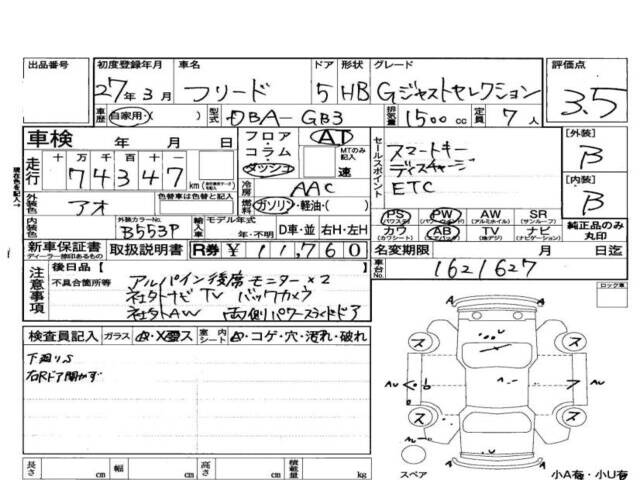 出品番号 初度登録年月 車名 ドア 形状 グレード 評価点
27年3月 フリード 5 HB Gジャストセレクション 3.5
車歴 自家用・( ) 型式 DBA-GB3 排気量 1500cc 定員 7人
車検 年 月 日 フロア・ AT セールスポイント スマートキー [外装]
コラム・ MTのみ記入 B
走行 十 万 千 百 十 ダッシュ 速 ETC
74347 km 冷房 AAC [内装]
現在の色を記入→ 外装色 アオ 色替車は色替と記入 燃料 ガソリン・軽油・( ) B
PS (パワステ) PW (パワーウインドウ) AW (アルミホイル) SR (サンルーフ)
内装色 外装カラーNo. B553P 輸入車 モデル年式 年・不明 D車・並 右H・左H カワ (カワシート) AB (エアバッグ) TV (地デジ) ナビ (ナビゲーション) 純正品のみ丸印
新車保証書 ディーラー捺印あるもの 取扱説明書 R券 ¥11,760 名変期限 月 日迄
注意事項 後日品[ ] 車台No. 1621627
不具合箇所等 アルパイン後席モニター×2 ロック車
社外ナビTV バックカメラ
社外AW 両側パワースライドドア
検査員記入 ガラス A・X・ス 室内シート ・コゲ・穴・汚れ・破れ
下廻りS
右Rドア開かず
ス ス
AU AU
ス ス
長さ cm 幅 cm 高さ cm 積載量 kg スペア 小A有・小U有